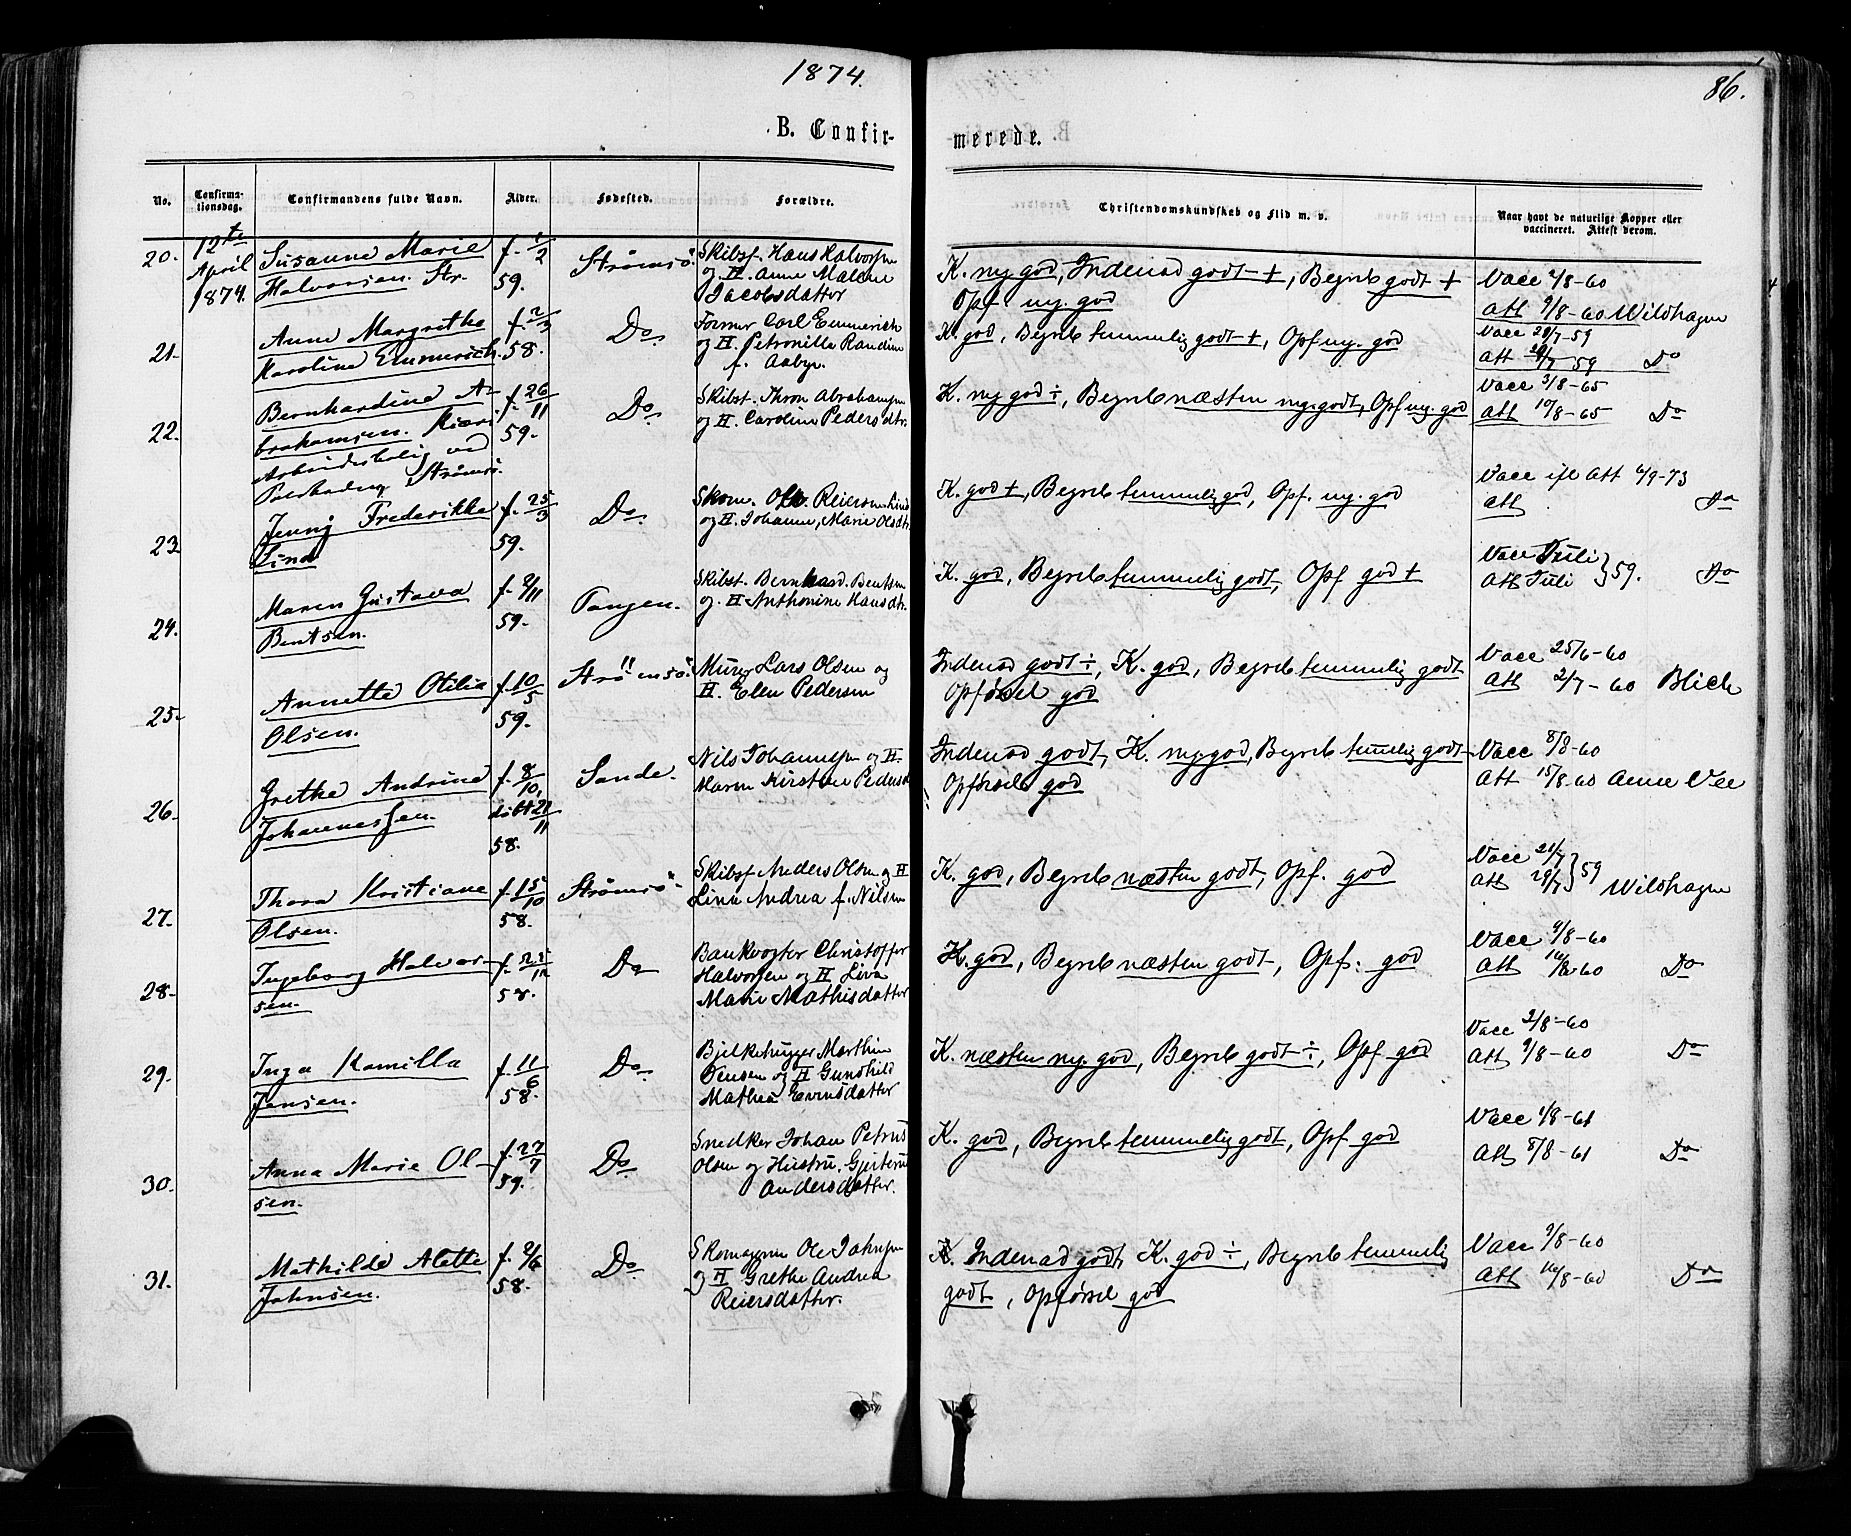 1874.
86.
B. Confir-
merede.
No.
Confirma-
tionsdag.
Confirmandens fulde Navn.
Alder.
Fødested.
Forældre.
Christendomskundskab og Flid m. v.
Naar havt de naturlige Kopper eller
vaccineret. Attest derom.
20.
12te
April
1874.
Susanne Marie
Halvorsen. Str.
f. 1/2
59.
Strømsö
Skibsf. Hans Halvorsen
og H. Anne Malene
Jacobsdatter
K. ny god, Indenad godt +, Begreb godt +
Opf. ny. god
Vacc 2/8-60
Att 9/8-60 Wildhagen
21.
Anne Margrethe
Karoline Emmerich.
f. 2/3
58.
Do
Former Carl Emmerich
og H. Petronille Randine
f. Aabye.
K. god, Begreb temmelig godt +, Opf ny. god
Vacc 21/7-59
Att 29/7-59 Do
22.
Bernhardine A-
brahamsen.
Arbeiderbolig ved
Strömsö.
f. 26/11
59.
Do
Skibst. Thron Abrahamsen
og H. Caroline Pedersdtr.
K. ny god ÷, Begreb næsten ny. godt, Opf ny. god
Vacc 3/8-65
Att 10/8-65 Do
23
Jenny Frederikke
Lind
f. 25/3
59.
Do.
Skom. Ole Reiersen Lind
og H. Johanne Marie Olsdtr.
K. god +, Begreb temmelig god, Opf. ny. god
Vacc ifl Att 6/9-73
Att Do
24.
Maren Gustava
Bentsen.
f. 9/11
59.
Tangen.
Skibst. Bernhard Bentsen
og H Anthonine Hansdtr.
K. god, Begreb temmelig godt, Opf god +
Vacc Juli
Att Juli } 59. Do
25.
Annette Otilia
Olsen.
f. 10/5
59.
Strömsö.
Murer Lars Olsen og
H. Elen Pedersen
Indenad godt ÷, K. god, Begreb temmelig godt
Opførsel god
Vacc 25/6-60
Att 2/7-60 Blich
26.
Grethe Andrine
Johannessen.
f. 8/10,
døbt 21/11
58.
Sande.
Nils Johannesen og H.
Maren Kirstine Pedersd
Indenad godt, K. ny god, Begreb temmelig godt
Opførsel god
Vacc 8/8-60
Att 15/8-60 Anne Vee
27.
Thora Kristiane
Olsen.
f. 15/10
58.
Strömsö
Skibsf Anders Olsen og H
Lina Andrea f. Nilsen
K. god, Begreb næsten godt, Opf. god
Vacc 21/7
Att 29/7 } 59 Wildhagen
28.
Ingeborg Halvor-
sen.
58.
Do
Bankvogter Christoffer
Halvorsen og H Lina
Marie Mathisdatter
K. god, Begreb næsten godt, Opf: god
Vacc 9/8-60
Att 16/8-60 Do
29.
Inga Kamilla
Jensen.
f. 11/6
58.
Do
Bjelkehugger Marthin
Jensen og H Gunhild
Mathea Evensdatter
K. næsten ny. god, Begreb godt ÷, Opf god
Vacc 2/8-60
Att 9/8-60 Do
30.
Anna Marie Ol-
sen.
f. 27/7
59.
Do
Snedker Johan Petrus
Olsen og Hustru,
Andersdatter.
K. god, Begreb temmelig godt, Opf god
Vacc 1/8-61
Att 8/8-61 Do
31.
Mathilde Alette
Johnsen.
f. 9/6
58.
Do
Skomagerm Ole Johnsen
og H Grethe Andrea
Reiersdatter.
Indenad godt, K. god ÷, Begreb temmelig
godt, Opførsel god
Vacc 9/8-60
Att 16/8-60 Do